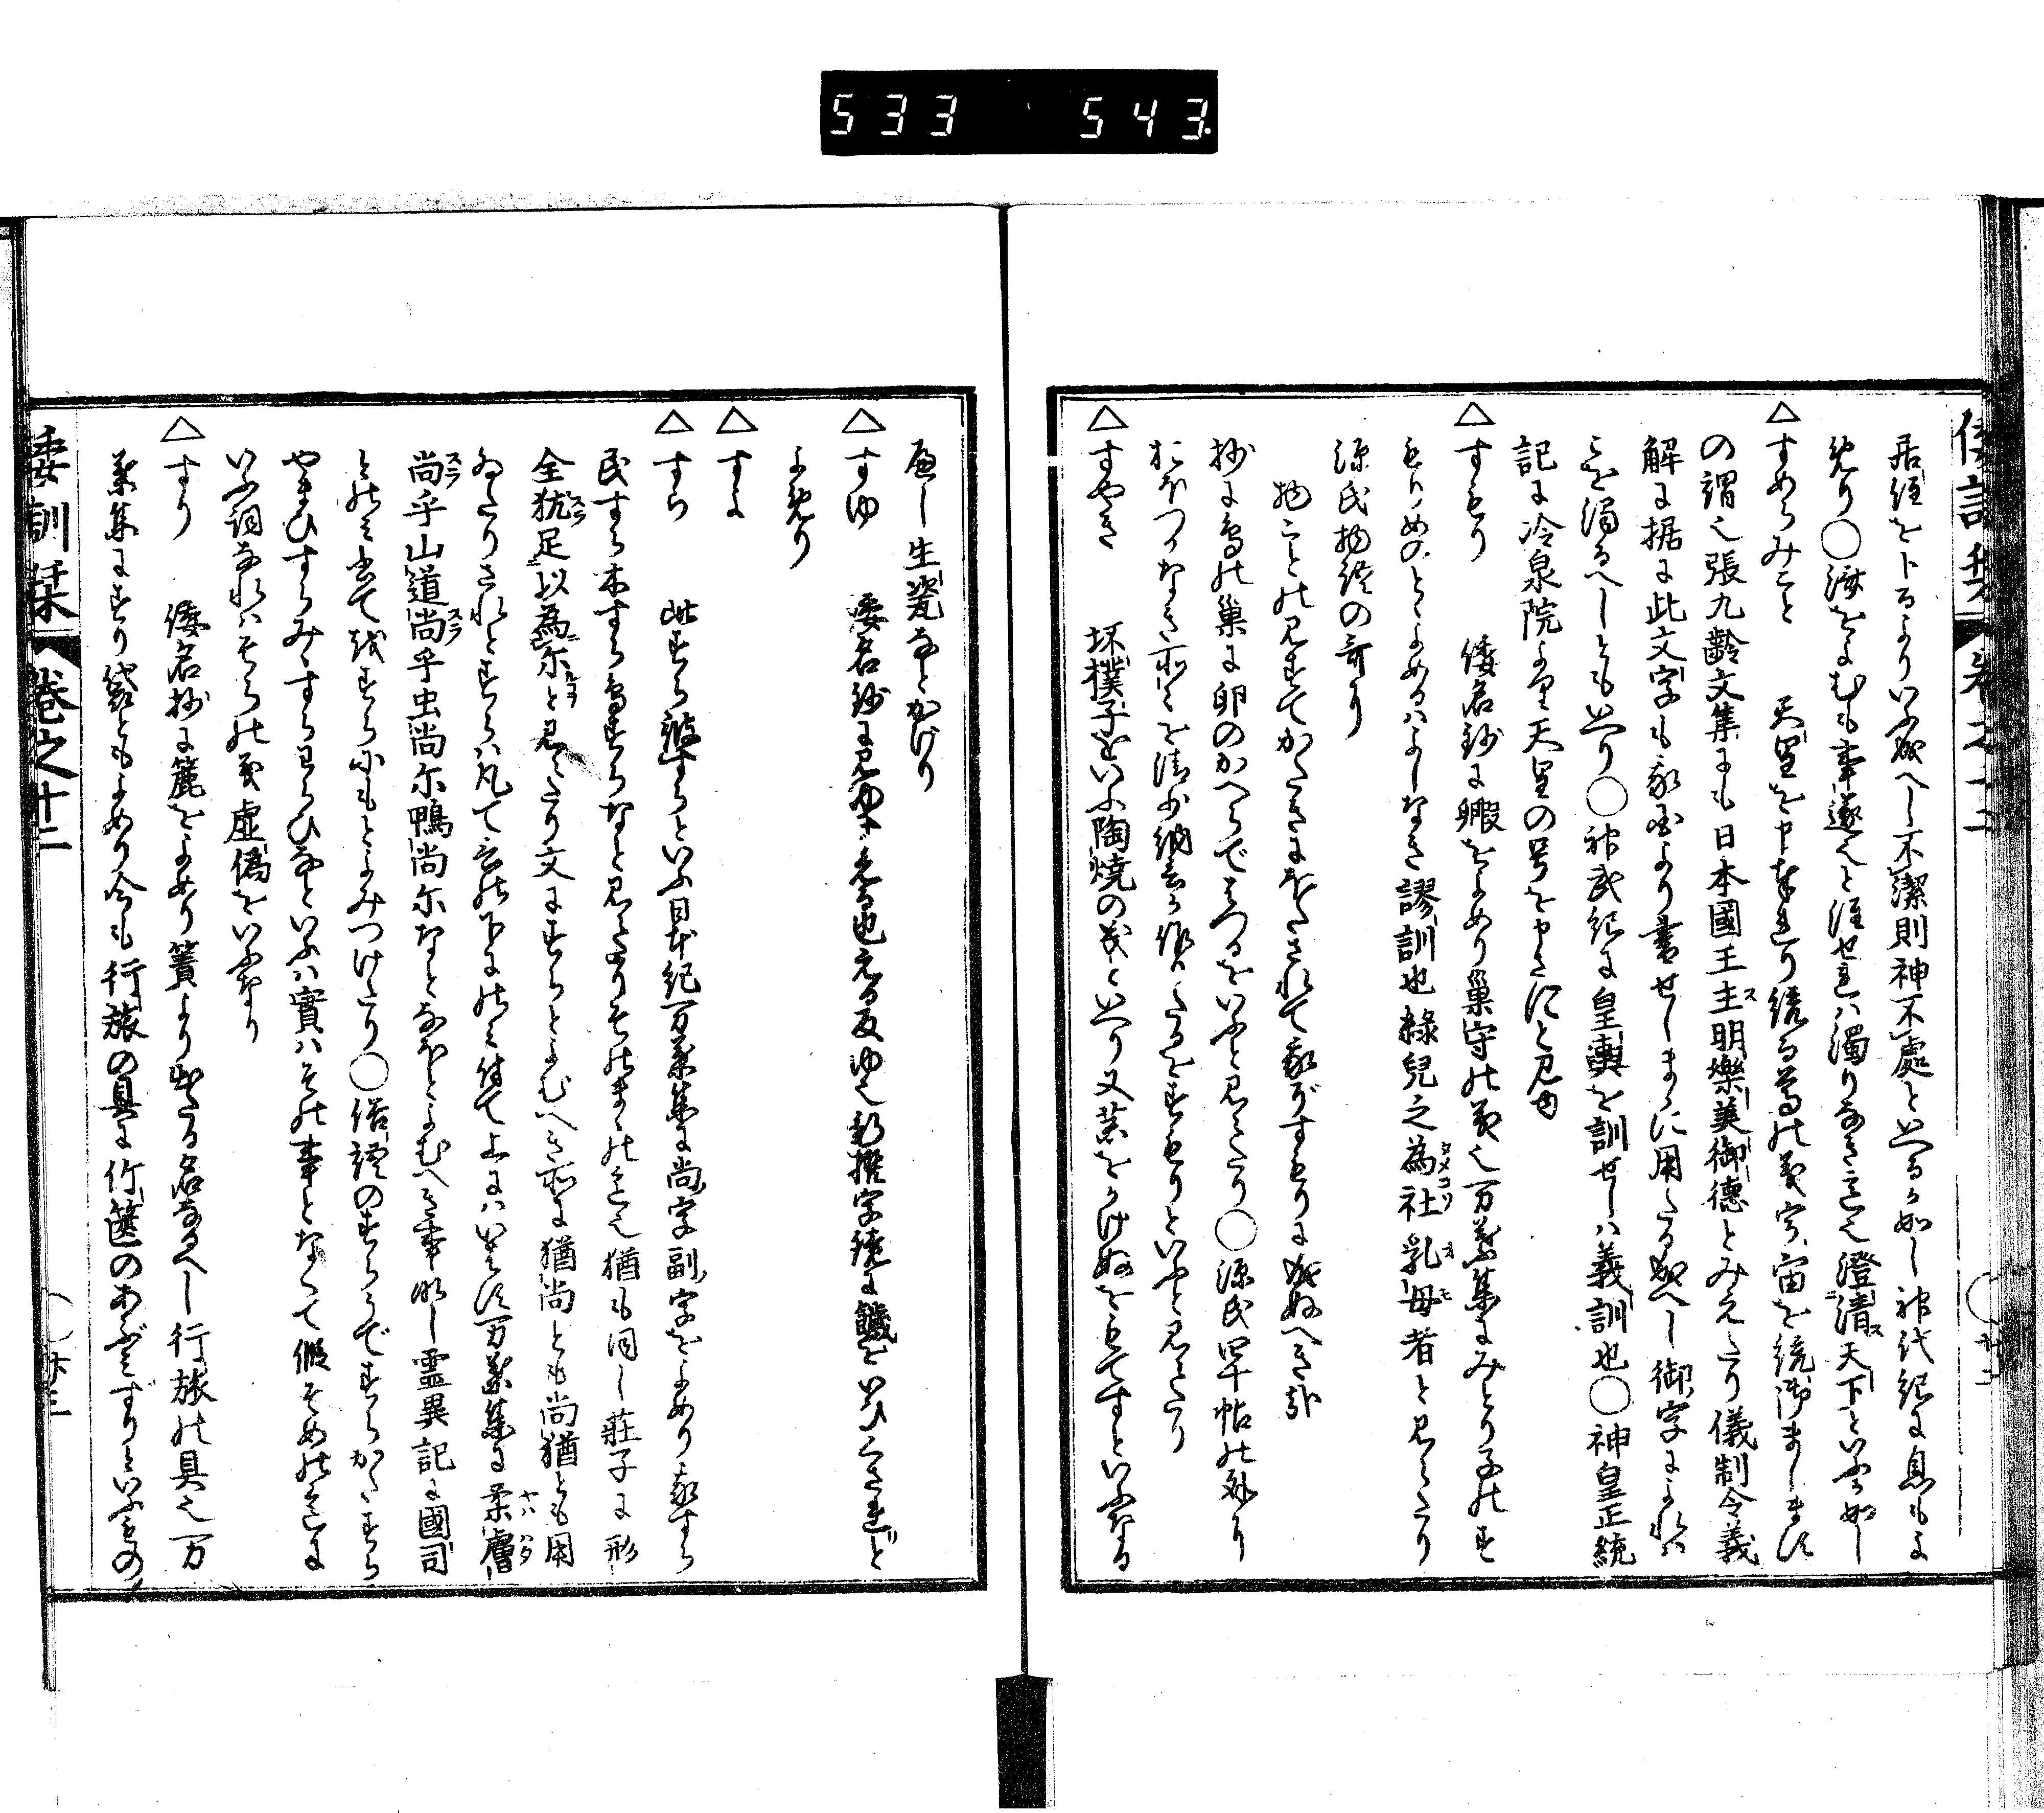 533 543.
倭訓栞 巻之十二
居住をトるよりいふ成へし不潔則神不處といへるか如し神代紀に息もよ
めり○済をよむも事遂也と注せれは濁りなき意也澄清天下といふか如し
△すめらみこと 天皇を申奉れり統る尊の義宇宙を統御まします
の謂也張九齢文集にも日本國王主明樂美御徳とみえたり儀制令義
解に据に此文字も我国より書せしまゝに用たる成へし御字によれは
こを濁るへしともいへり○神武紀に皇輿を訓せしは義訓也○神皇正統
記に冷泉院より天皇の号を申さすと見ゆ
△すもり 倭名鈔に毈をよめり巣守の義也万葉集にみどり子のす
もりめのとよめるはよしなき謬訓也緑兒之為社乳母者と見えたり
源氏物語の哥に
物ことの見すてかたきにほたされて我ぞすもりに成ぬへき
抄に鳥の巣に卵のかへらでまつるをいふと見えたり○源氏四十帖の外に
おほつかなき所〻を清少納言か作りたるをすもりといふと見えたり
△すやき 坏樸子をいふ陶焼の義といへり又薬をかけぬをもてすといふなる
へし生瓷なとかけり
△すゆ 倭名鈔に見ゆ する也 える反ゆ也 新撰字鏡に饑をいひくされと
よめり
△すよ
△すら 此すら彼すらといふ日本紀万葉集に尚字副字をよめり我すら
民すら木すら鳥すらなと見えたりそのまゝの意也猶も同し莊子に形
全犹足以為尓と見えたり文にすらとよむへき所に猶尚とも尚猶とも用
ゐたりされとすらは凡て言の下にのみ付て上にはいはす万葉集に柔膚
尚乎山道尚乎虫尚尓鴨尚尓なとなほとよむへき事明し靈異記に國司
とのみ出て我すら尓もとよみつけたり○俗語のすらうですらかたすら
やまひすらみすらわらひなといふは實はその事となくて假そめの意に
いふ詞なれはそらの義虚偽をいふなり
△すり 倭名抄に簏をよめり簀より出たる名なるへし行旅の具也万
葉集にすり袋ともよめり今も行旅の具に竹篋のあふミずりといふもの
委訓栞 巻之十二 廿三